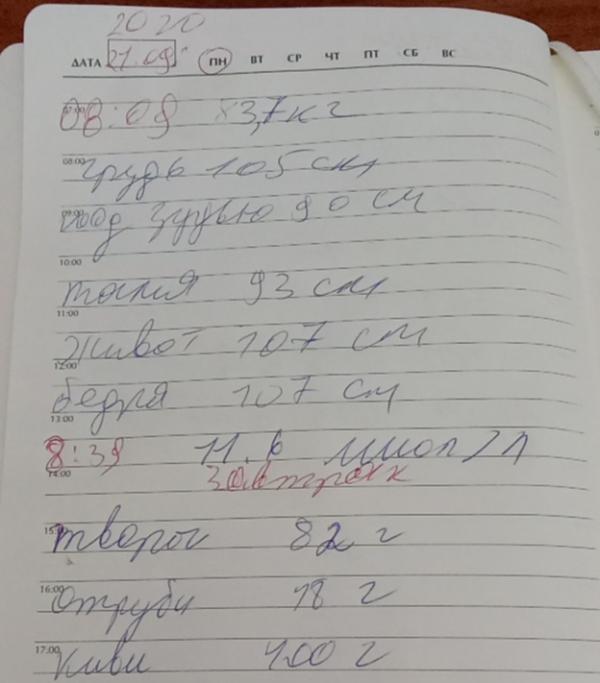 2020
ДАТА 21.09 ПН ВТ СР ЧТ ПТ СБ ВС
07:00
08:09 83,7 кг
08:00
грудь 105 см
09:00
под грудью 90 см
10:00
талия 93 см
11:00
живот 107 см
12:00
бедра 107 см
13:00
8:39 11.6 ммол/л
14:00
завтрак
творог 82 г
16:00
отруби 18 г
17:00
киви 100 г